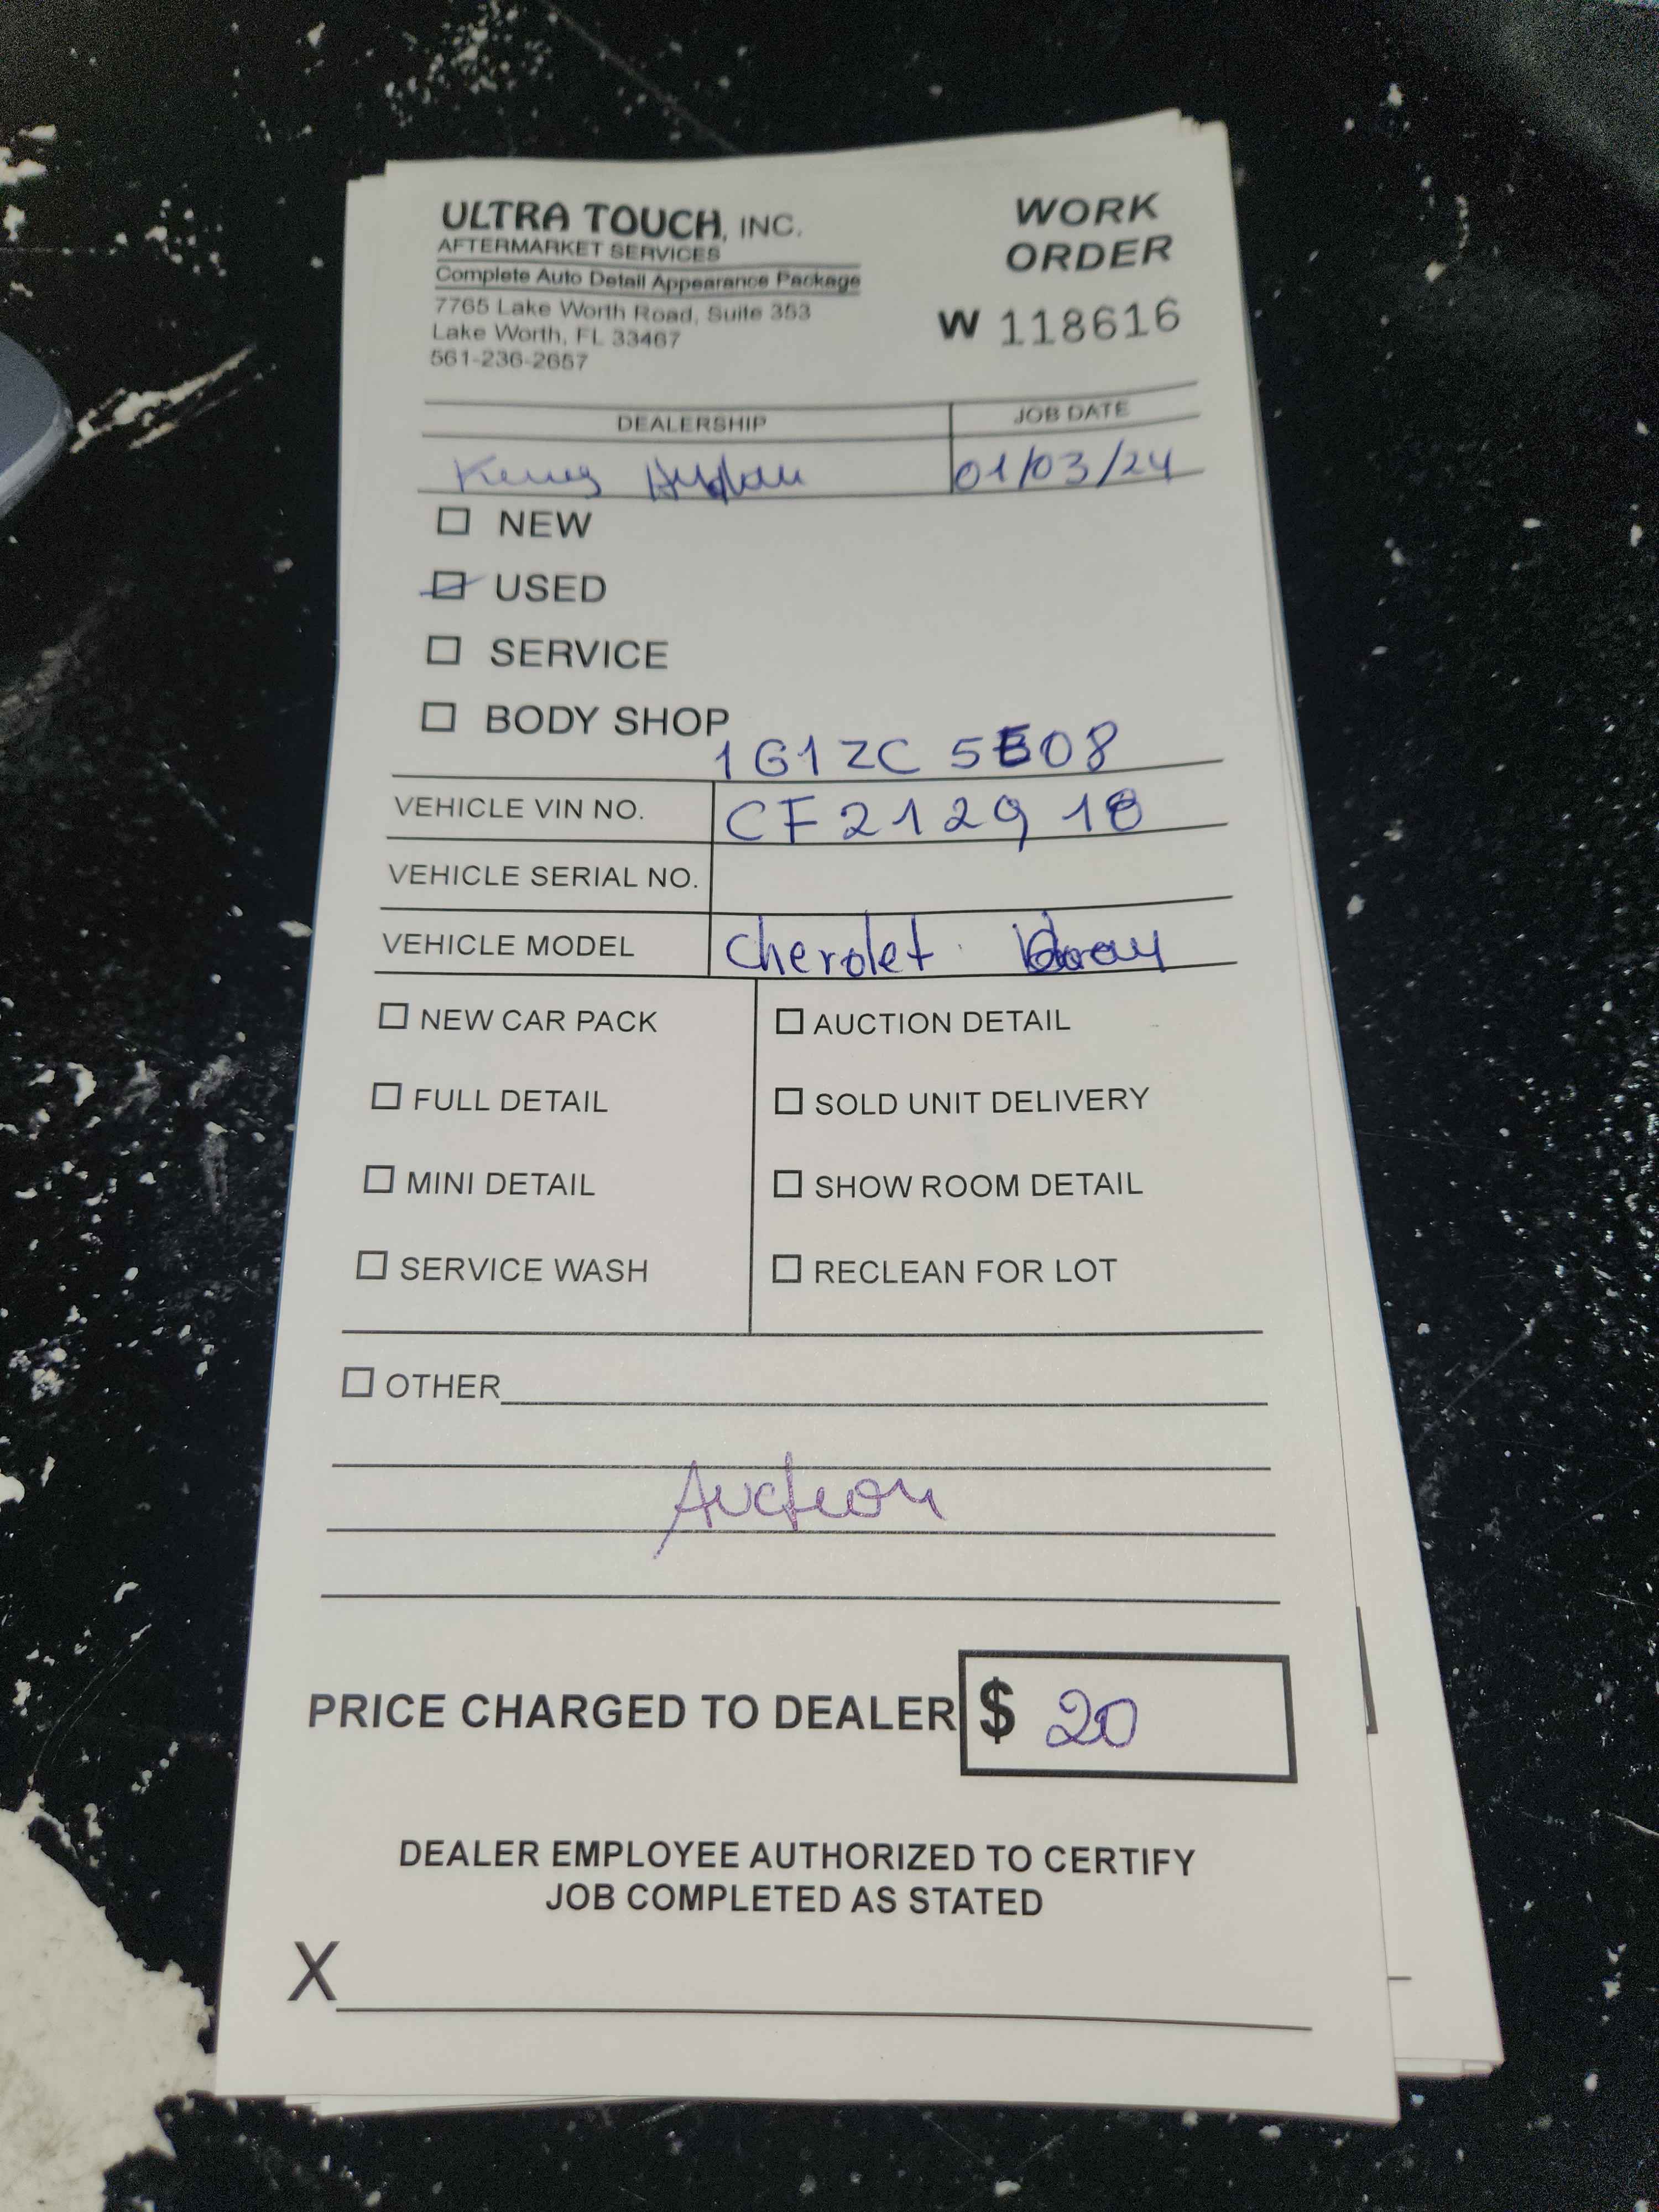 ULTRA TOUCH, INC.
AFTERMARKET SERVICES
Complete Auto Detail Appearance Package
7765 Lake Worth Road, Suite 353
Lake Worth, FL 33467
561-236-2657
WORK
ORDER
W 118616
DEALERSHIP
JOB DATE
01/03/24
NEW
USED
SERVICE
BODY SHOP
1G1ZC5E08
VEHICLE VIN NO. CF212918
VEHICLE SERIAL NO.
VEHICLE MODEL Cherolet
NEW CAR PACK
FULL DETAIL
MINI DETAIL
SERVICE WASH
AUCTION DETAIL
SOLD UNIT DELIVERY
SHOW ROOM DETAIL
RECLEAN FOR LOT
OTHER
Auction
PRICE CHARGED TO DEALER $ 20
DEALER EMPLOYEE AUTHORIZED TO CERTIFY
JOB COMPLETED AS STATED
X